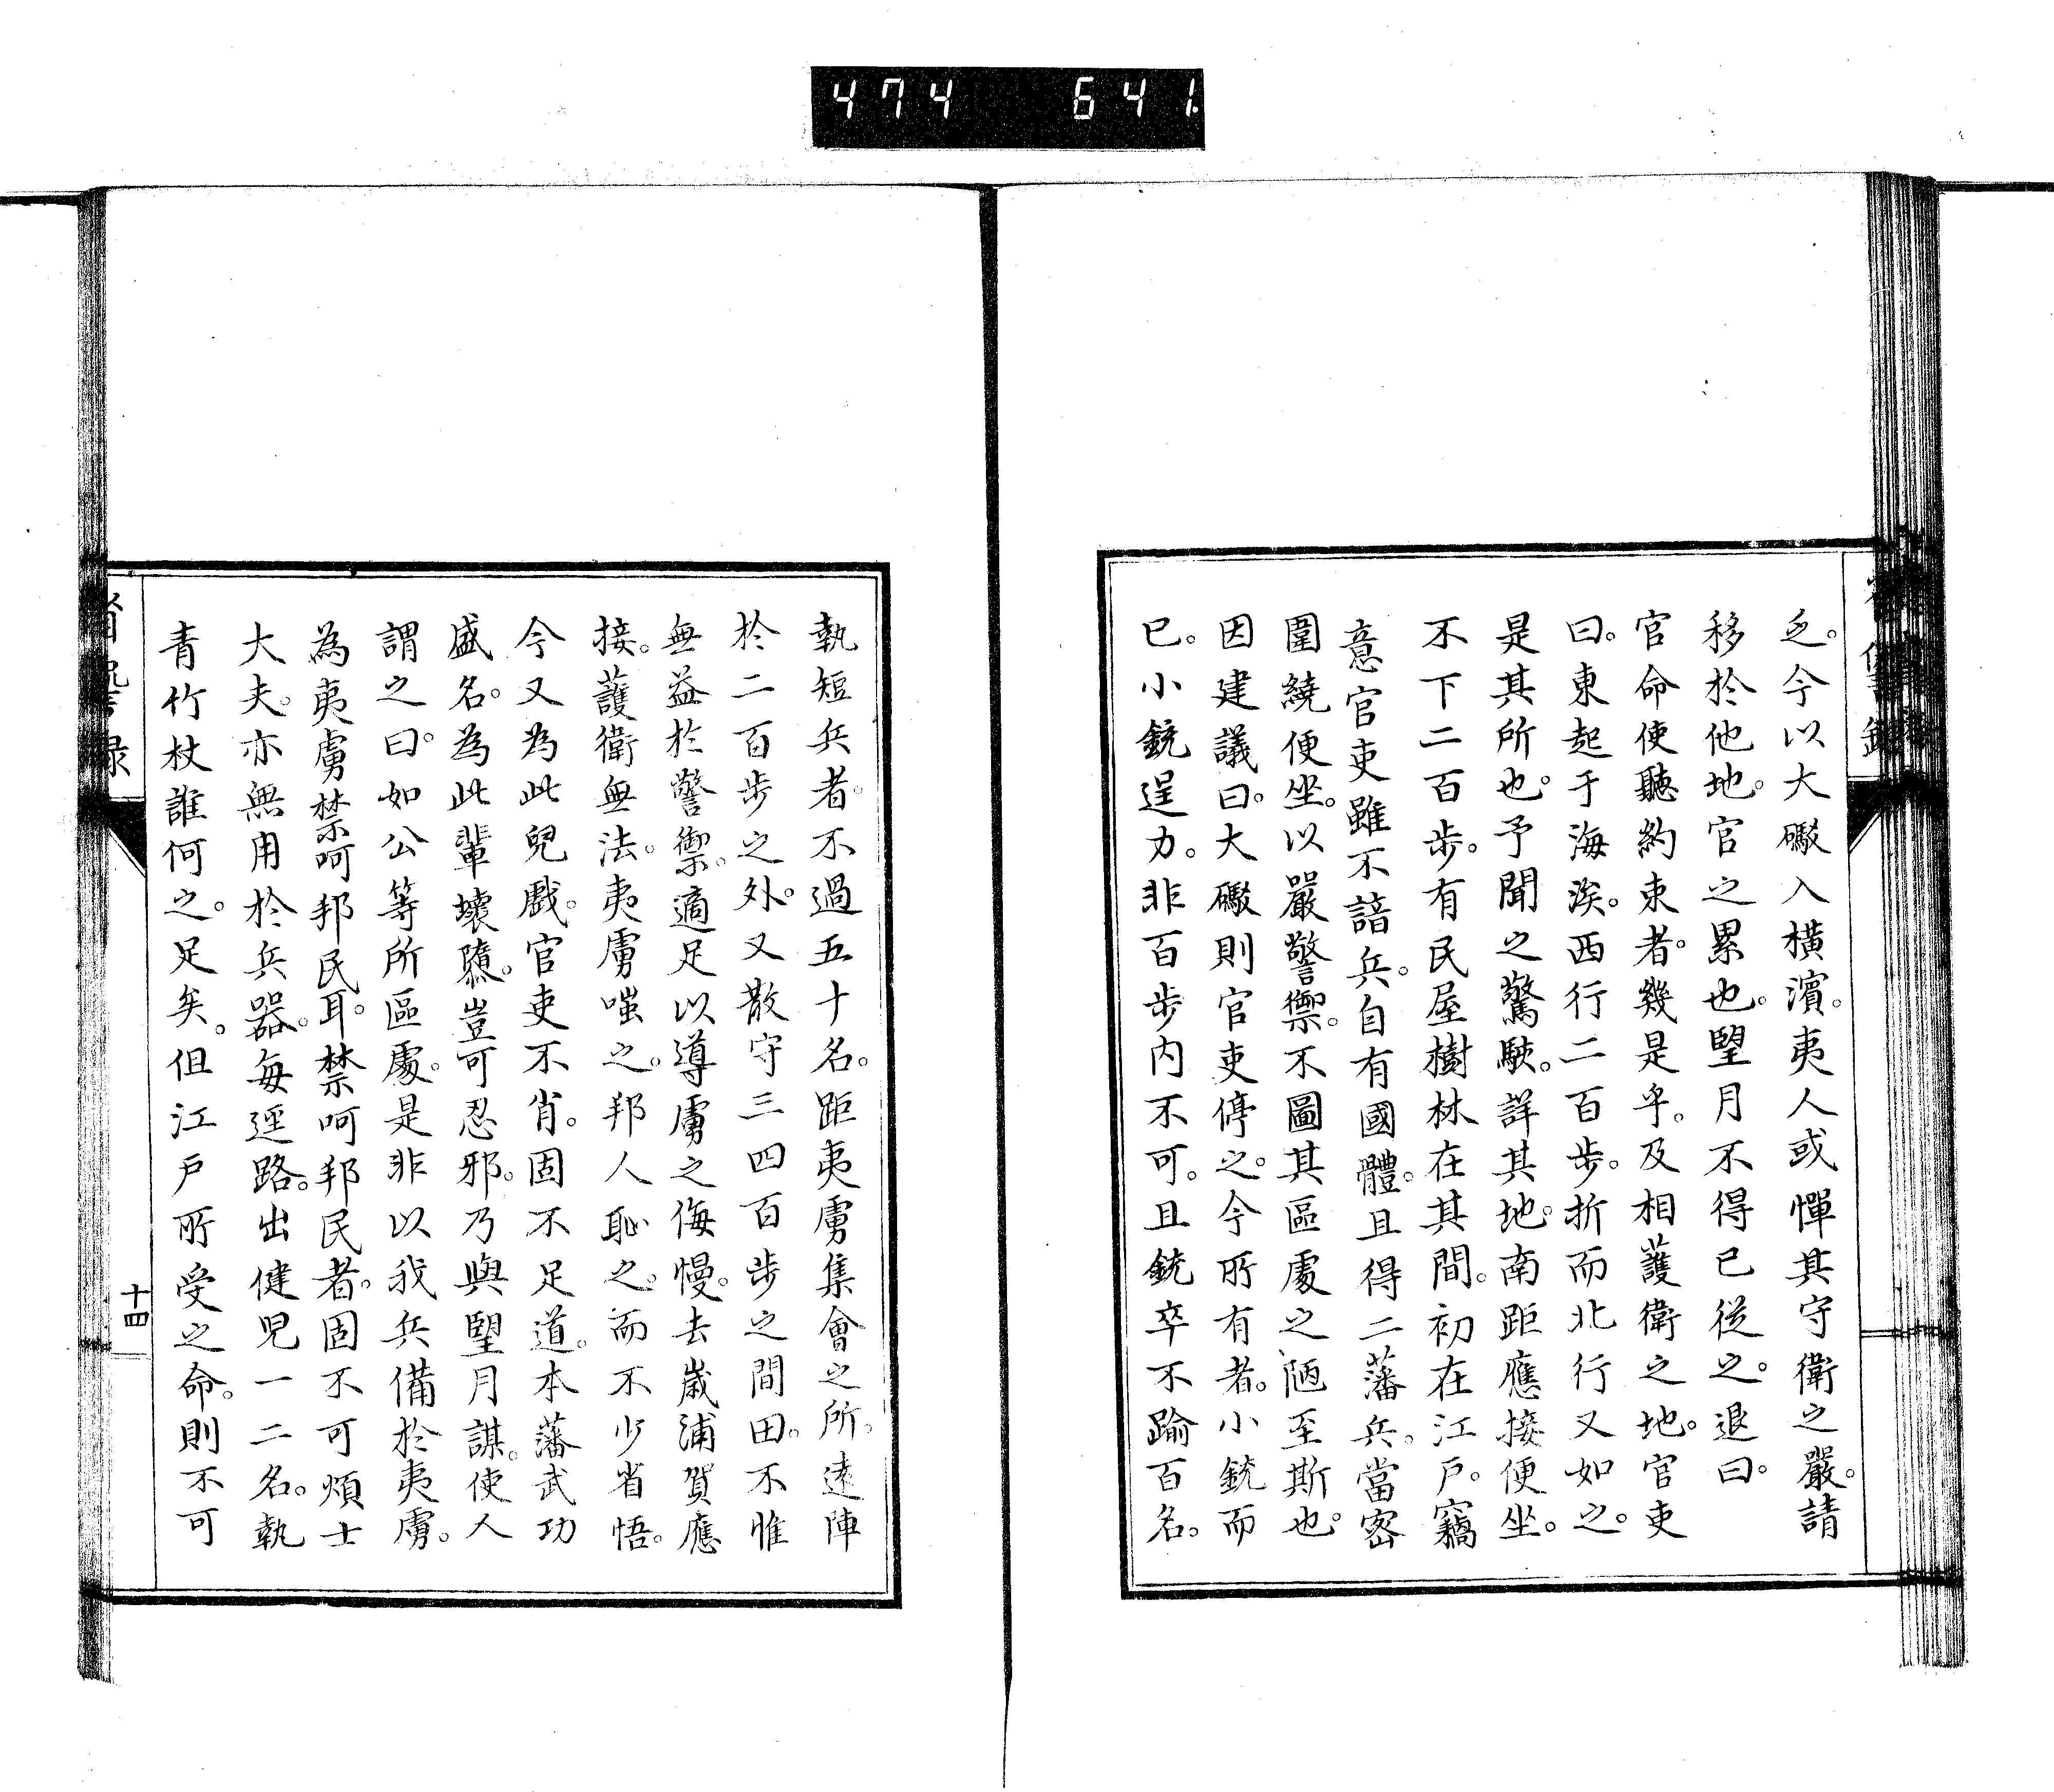 474 641
乏。今以大礮入横濱。夷人或憚其守衛之嚴。請
移於他地。官之累也。朢月不得已從之。退曰。
官命使聽約束者。幾是乎。及相護衛之地。官吏
曰。東起于海涘。西行二百步。折而北行又如之。
是其所也。予聞之驚駭。詳其地。南距應接便坐。
不下二百步。有民屋樹林在其間。初在江戸。竊
意官吏雖不諳兵。自有國體。且得二藩兵。當密
圍繞便坐。以嚴警禦。不圖其區處之陋至斯也。
因建議曰。大礮則官吏停之。今所有者。小銃而
已。小銃逞力。非百步内不可。且銃卒不踰百名。
執短兵者。不過五十名。距夷虜集會之所。遠陣
於二百步之外。又散守三四百步之間田。不惟
無益於警禦。適足以導虜之侮慢。去歲浦賀應
接。護衛無法。夷虜嗤之。邦人恥之。而不少省悟。
今又為此兒戲。官吏不肖。固不足道。本藩武功
盛名。為此輩壞隳。豈可忍邪。乃與朢月謀。使人
謂之曰。如公等所區處。是非以我兵備於夷虜。
為夷虜禁呵邦民耳。禁呵邦民者。固不可煩士
大夫。亦無用於兵器。每逕路。出健兒一二名。執
青竹杖誰何之。足矣。但江戸所受之命。則不可
省諐録
十四